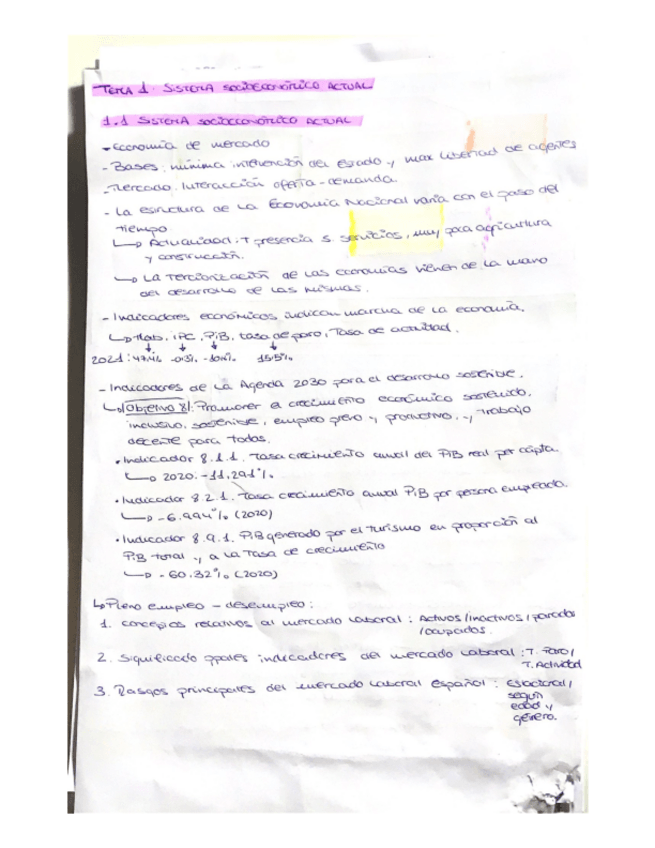 TEMA 1: SISTEMA SOCIOECONÓMICO ACTUAL
1.1 SISTEMA SOCIOECONÓMICO ACTUAL
- Economía de mercado
- Bases: mínima intervención del estado y max libertad de agentes
- Mercado: Interacción oferta-demanda.
- La estructura de la Economía Nacional varía con el paso del
tiempo.
↳ Actualidad: + presencia s. servicios, muy poca agricultura
y construcción.
↳ La Terciarización de las economías vienen de la mano
del desarrollo de las mismas.
- Indicadores económicos indican marcha de la economía.
↳ Hab, IPC, PIB, tasa de paro, Tasa de actividad.
2021: 47.4
15.5%
- Indicadores de la Agenda 2030 para el desarrollo sostenible.
↳ Objetivo 8: Promover el crecimiento económico sostenido,
inclusivo, sostenible, empleo pleno y productivo, y trabajo
decente para todos.
• Indicador 8.1.1. Tasa crecimiento anual del PIB real per cápita.
↳ 2020: -11,291%
• Indicador 8.2.1. Tasa crecimiento anual PIB por persona empleada.
↳ -6.994% (2020)
• Indicador 8.9.1. PIB generado por el turismo en proporción al
PIB total y a la Tasa de crecimiento
↳ -60.32% (2020)
↳ Pleno empleo - desempleo:
1. Conceptos relativos al mercado laboral: Activos/inactivos/parados
/ocupados.
2. Significado ppales indicadores del mercado laboral: T. Paro/
T. Actividad
3. Rasgos principales del mercado laboral español: Estacional,
según
edad y
género.